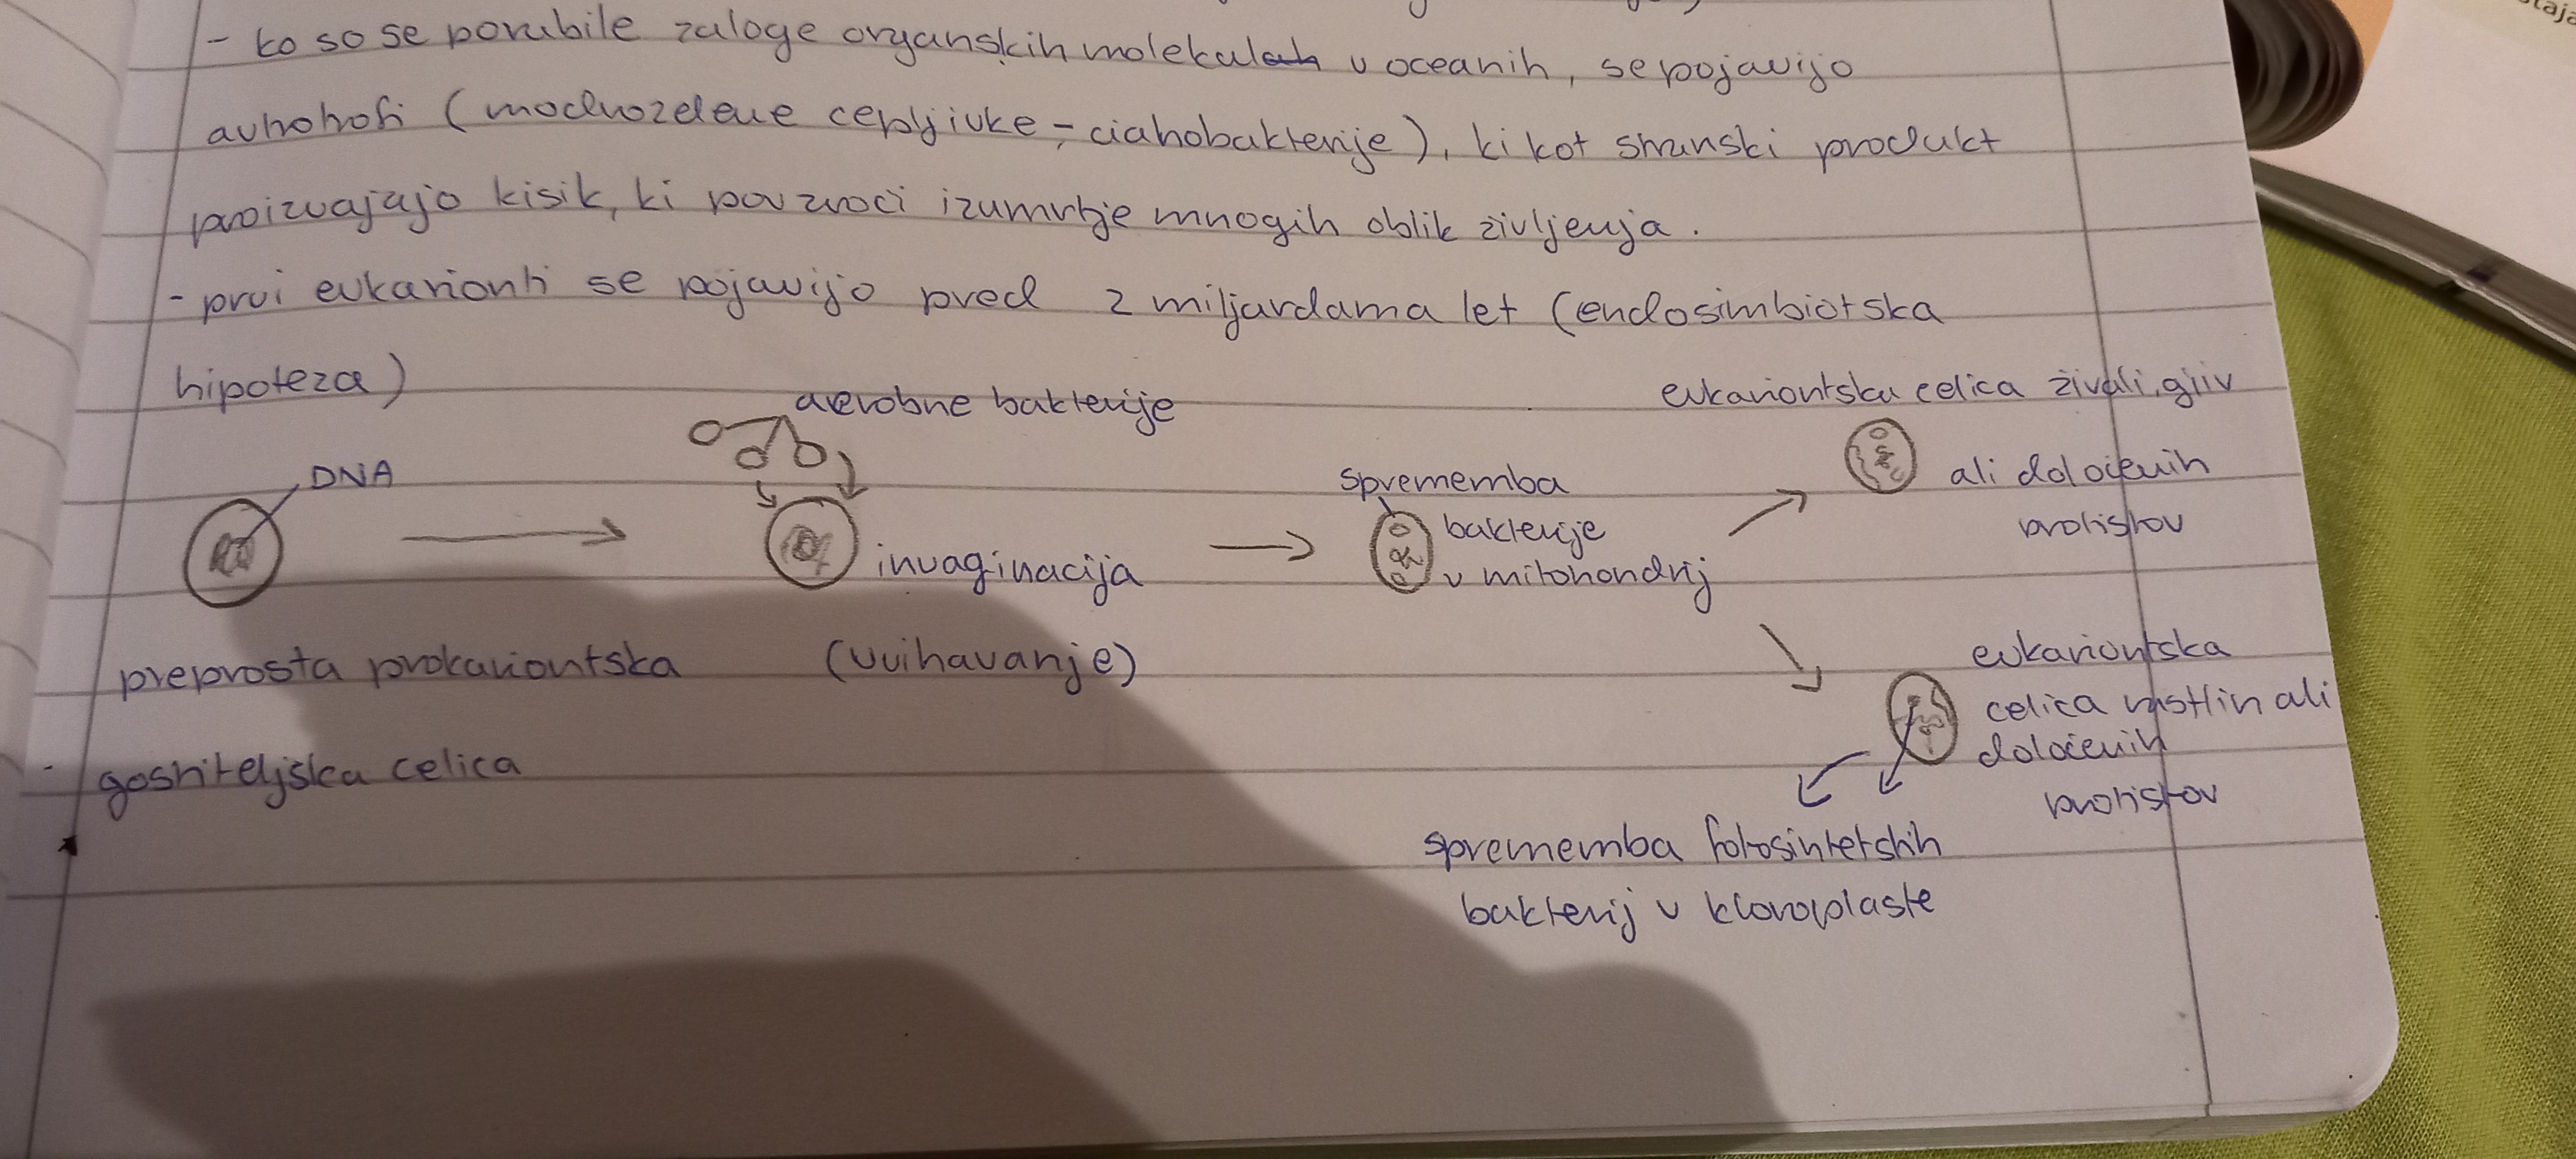 - ko so se porabile zaloge organskih molekul v oceanih, se pojavijo
avtotrofi (modrozelene cepljivke - cianobakterije), ki kot stranski produkt
proizvajajo kisik, ki povzroči izumrtje mnogih oblik življenja.
- prvi evkarionti se pojavijo pred 2 miljardama let (endosimbiotska
hipoteza)
aerobne bakterije
evkariontska celica živali, gliv
ali določenih
protistov
DNA
sprememba
bakterije
v mitohondrij
invaginacija
(uvihavanje)
preprosta prokariontska
gostiteljska celica
evkariontska
celica rastlin ali
določenih
protistov
sprememba fotosintetskih
bakterij v kloroplaste